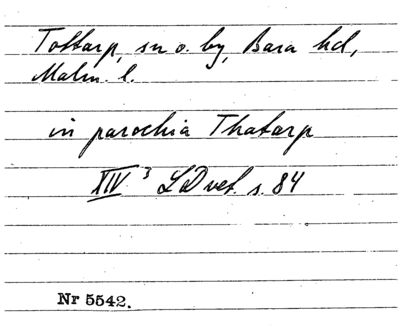 Tottarp, sn o. by, Bara hd,
Malm. l.
in parochia Thatarp
XIV 3 LDvet. s. 84
Nr 5542.